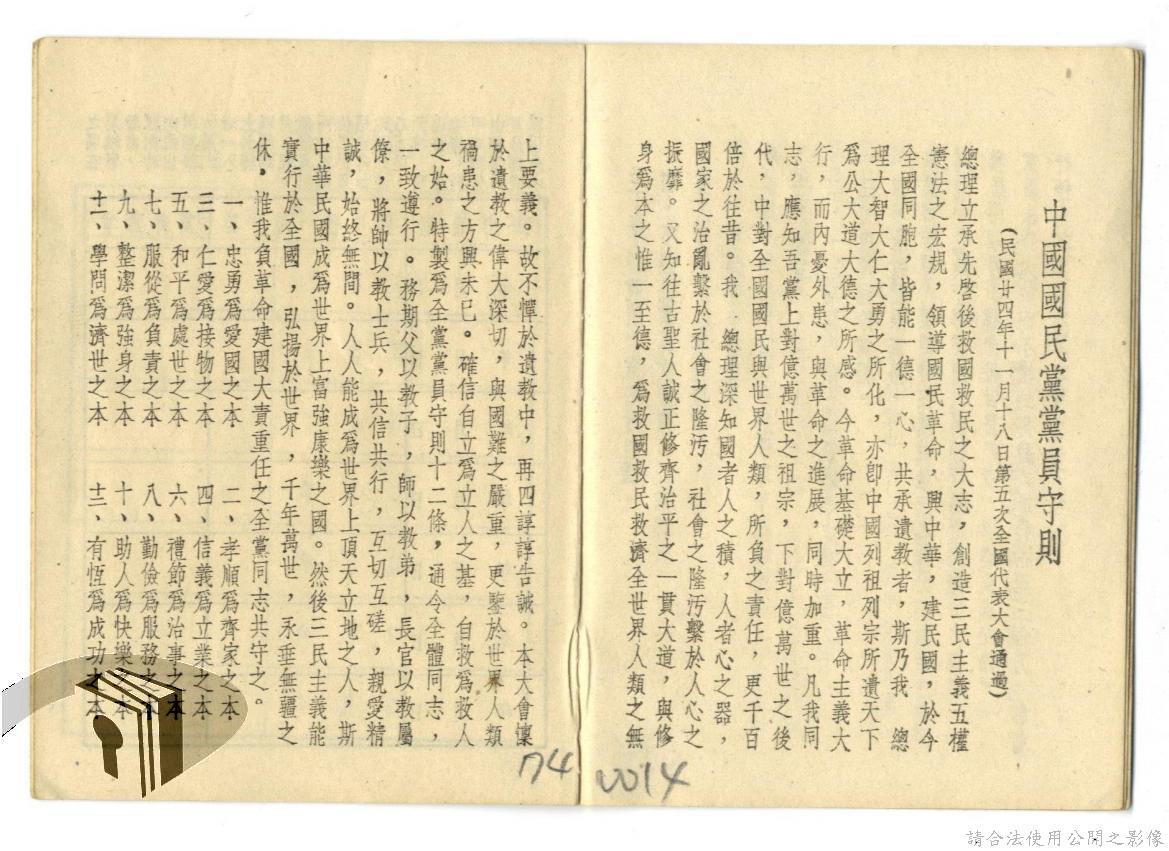 中國國民黨黨員守則
(民國廿四年十一月十八日第五次全國代表大會通過)
總理立承先啓後救國救民之大志，創造三民主義五權
憲法之宏規，領導國民革命，興中華，建民國，於今
全國同胞，皆能一德一心，共承遺教者，斯乃我　總
理大智大仁大勇之所化，亦卽中國列祖列宗所遺天下
爲公大道大德之所感。今革命基礎大立，革命主義大
行，而內憂外患，與革命之進展，同時加重。凡我同
志，應知吾黨上對億萬世之祖宗，下對億萬世之後
代，中對全國國民與世界人類，所負之責任，更千百
倍於往昔。我　總理深知國者人之積，人者心之器，
國家之治亂繫於社會之隆汚，社會之隆汚繫於人心之
振靡。又知往古聖人誠正修齊治平之一貫大道，與修
身爲本之惟一至德，爲救國救民救濟全世界人類之無
上要義。故不憚於遺教中，再四諄諄告誡。本大會懍
於遺教之偉大深切，與國難之嚴重，更鑒於世界人類
禍患之方興未已。確信自立爲立人之基，自救爲救人
之始。特製爲全黨黨員守則十二條，通令全體同志，
一致遵行。務期父以教子，師以教弟，長官以教屬
僚，將帥以教士兵，共信共行，互切互磋，親愛精
誠，始終無間。人人能成爲世界上頂天立地之人，斯
中華民國成爲世界上富強康樂之國。然後三民主義能
實行於全國，弘揚於世界，千年萬世，永垂無疆之
休，惟我負革命建國大責重任之全黨同志共守之。
一、忠勇爲愛國之本　二、孝順爲齊家之本
三、仁愛爲接物之本　四、信義爲立業之本
五、和平爲處世之本　六、禮節爲治事之本
七、服從爲負責之本　八、勤儉爲服務之本
九、整潔爲強身之本　十、助人爲快樂之本
十一、學問爲濟世之本　十二、有恆爲成功之本
0014
請合法使用公開之影像